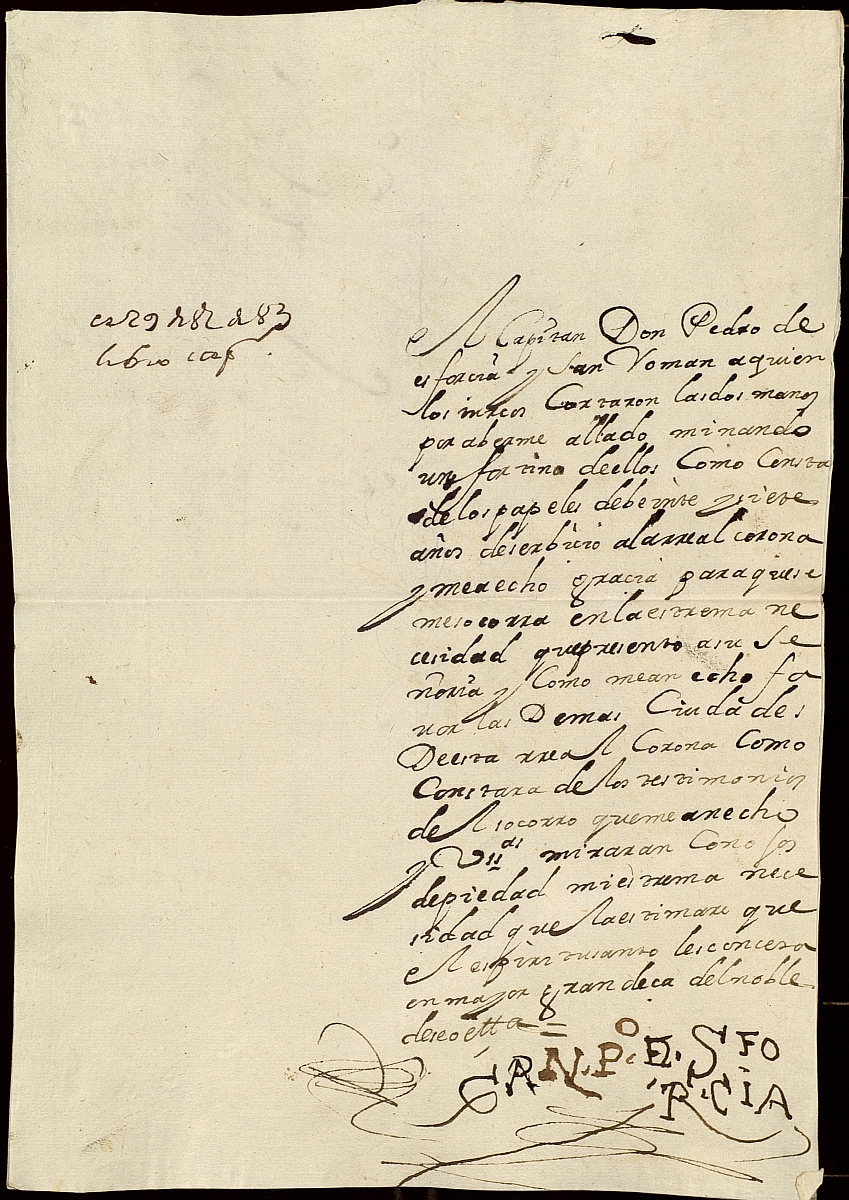 en 29 de 82 a 83
libro cap
el Capitan Don Pedro de
esforcia y San Roman a quien
los turcos Cortaron las dos manos
por aberme allado minando
un fortino de ellos Como Consta
de los papeles de beinte y siete
años de serbicio a la rreal corona
y me a echo gracia para que se
me socorra en la estrema ne
cesidad que presento a su Se
ñoria y Como me an echo fa
vor las Demas Ciudades
De esta rreal Corona Como
Constara de los testimonios
del socorro que me an echo
y VSSas miraran Con ojos
de piedad mi estrema nece
sidad que la estimare que
el espiritu santo les concera
en mayor grandeca del noble
deseo etta =
CAN. P.o E. SFO
RCIA